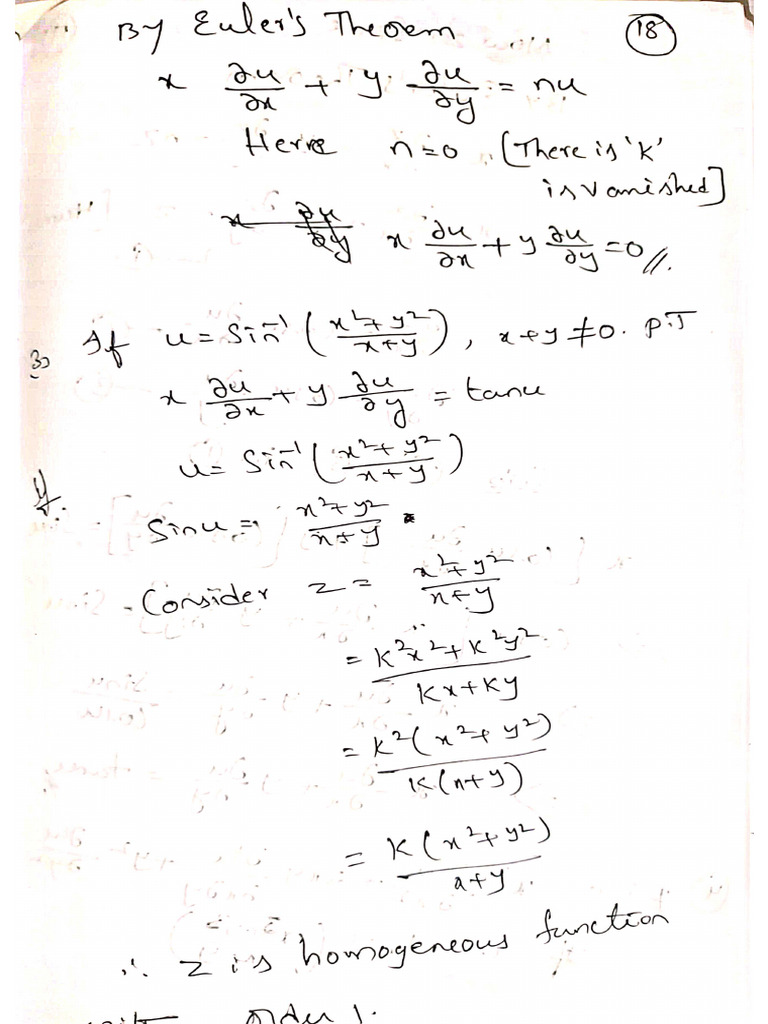 By Euler's Theorem (18)
x ∂u/∂x + y. ∂u/∂y = nu
Here n=0 [There is 'K'
is vanished]
x ∂u/∂y x ∂u/∂x + y ∂u/∂y = 0 //.
3) If u = Sin⁻¹ (x²+y²/x+y), x+y ≠ 0. P.T
x ∂u/∂x + y ∂u/∂y = tanu
u = Sin⁻¹ (x²+y²/x+y)
Sinu = x²+y²/x+y
Consider z = x²+y²/x+y
= K²x²+K²y²/Kx+Ky
= K²(x²+y²)/K(x+y)
= K(x²+y²)/x+y.
∴ z is homogeneous function
order 1.